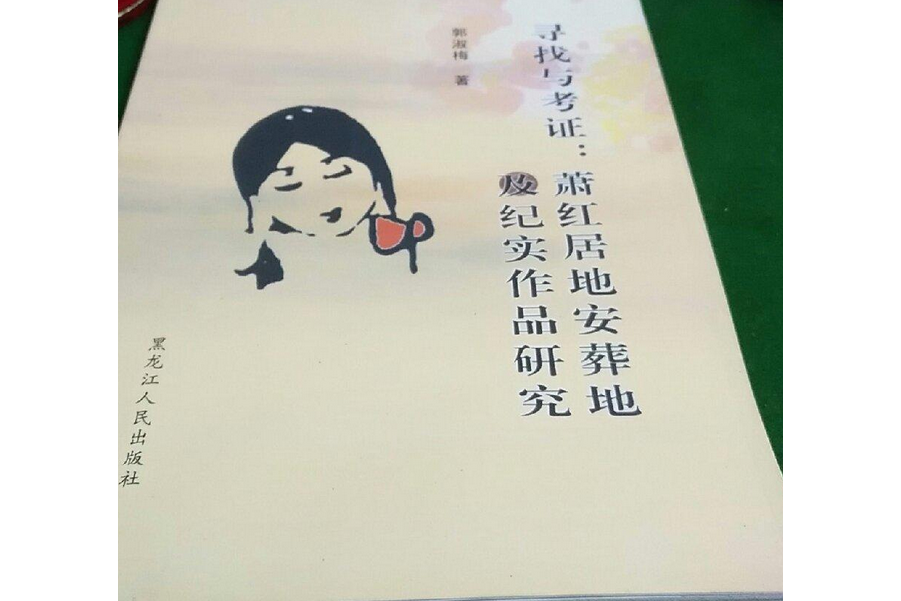 寻找与考证：萧红居地安葬地
及纪实作品研究
郭淑梅 著
黑龙江人民出版社